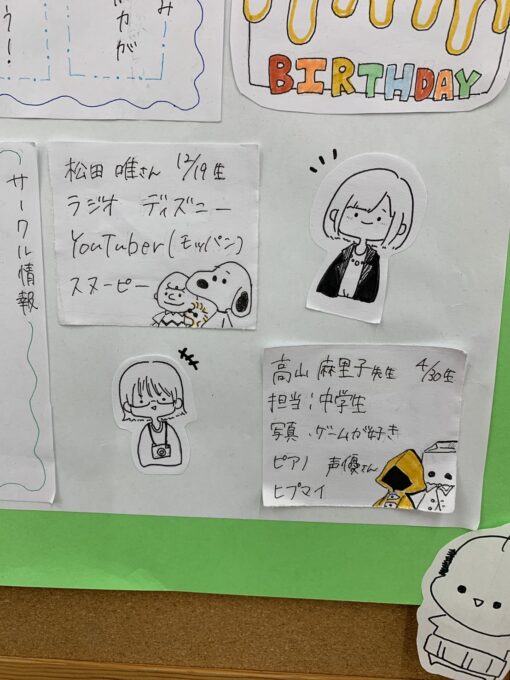 BIRTHDAY
サークル情報
松田 唯さん 12/19生
ラジオ ディズニー
YouTuber(モッパン)
スヌーピー
高山 麻里子先生 4/30生
担当:中学生
写真・ゲームが好き
ピアノ 声優さん
ヒプマイ